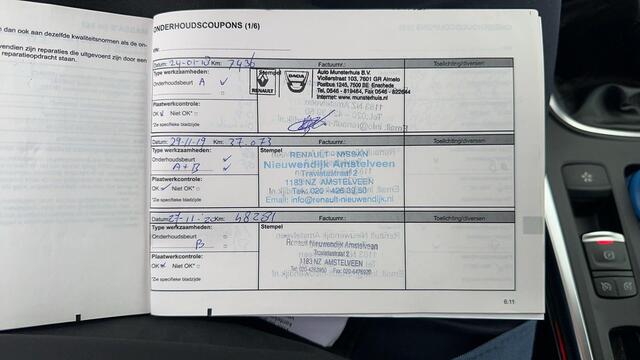 dan ook aan dezelfde kwaliteitsnormen als de on-
vendien zijn reparaties die uitgevoerd zijn door een
reparatieopdracht staan.
ONDERHOUDSCOUPONS (1/6)
VIN:
Datum: 24-01-18 Km: 7436 Factuurnr.: Toelichting/diversen
Type werkzaamheden: Stempel
Onderhoudsbeurt A ✓
RENAULT DACIA
Auto Munsterhuis B.V.
Violierstraat 103, 7601 GR Almelo
Postbus 1245, 7500 BE Enschede
Tel. 0546 - 819464, Fax 0546 - 822644
Internet: www.munsterhuis.nl
Plaatwerkcontrole:
OK ✓ Niet OK*
*Zie specifieke bladzijde
Datum: 29-11-19 Km: 37.073 Factuurnr.: Toelichting/diversen
Type werkzaamheden: Stempel
Onderhoudsbeurt ✓
A+B ✓
RENAULT NISSAN
Nieuwendijk Amstelveen
Traviatastraat 2
1183 NZ AMSTELVEEN
Tel.: 020 - 426 39 50
Email: info@renault-nieuwendijk.nl
Plaatwerkcontrole:
OK ✓ Niet OK*
*Zie specifieke bladzijde
Datum: 27-11-20 Km: 48251 Factuurnr.: Toelichting/diversen
Type werkzaamheden: Stempel
Onderhoudsbeurt
B
Renault Nieuwendijk Amstelveen
Traviatastraat 2
1183 NZ AMSTELVEEN
Tel.: 020-4263950 Fax: 020-6476920
Plaatwerkcontrole:
OK ✓ Niet OK*
*Zie specifieke bladzijde
6.11